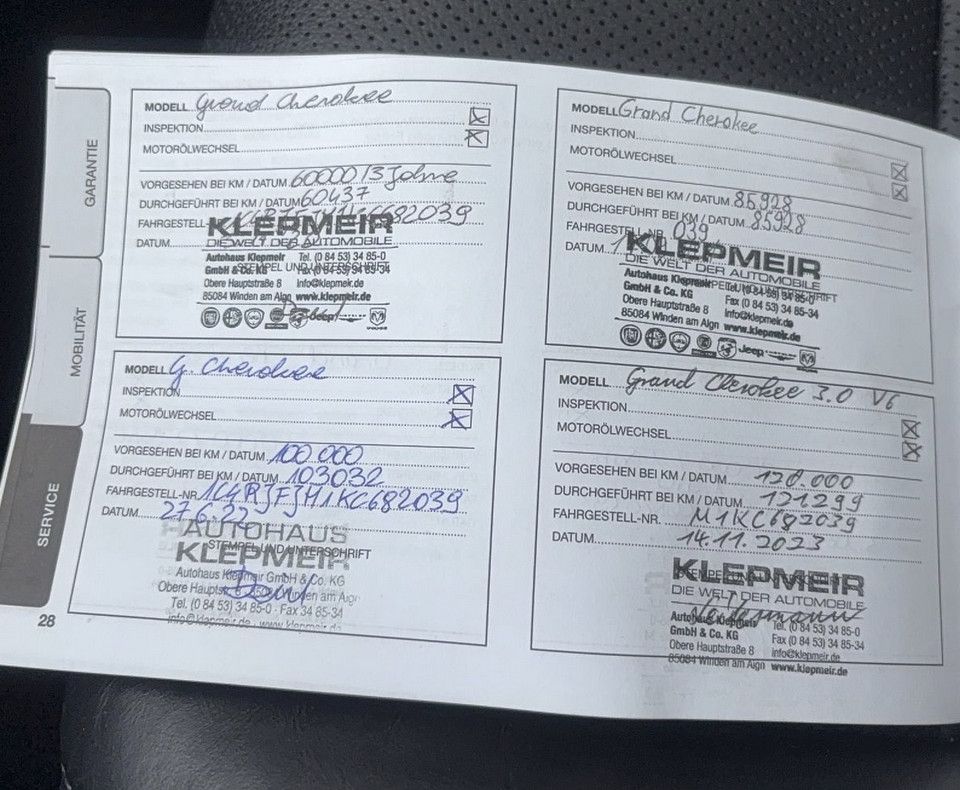 GARANTIE
MOBILITÄT
SERVICE
28
MODELL Grand Cherokee
INSPEKTION
MOTORÖLWECHSEL
VORGESEHEN BEI KM / DATUM 60000 / 3 Jahre
DURCHGEFÜHRT BEI KM / DATUM 60437
FAHRGESTELL- KC682039
KLEPMEIR
DATUM
DIE WELT DER AUTOMOBILE
Autohaus Klepmeir Tel. (0 84 53) 34 85-0
STEMPEL UND UNTERSCHRIFT
GmbH & Co. KG Fax (0 84 53) 34 85-34
Obere Hauptstraße 8 info@klepmeir.de
85084 Winden am Aign www.klepmeir.de
Jeep
MODELL Grand Cherokee
INSPEKTION
MOTORÖLWECHSEL
VORGESEHEN BEI KM / DATUM 85928
DURCHGEFÜHRT BEI KM / DATUM 85928
FAHRGESTELL-NR. 039
DATUM
KLEPMEIR
DIE WELT DER AUTOMOBILE
STEMPEL UND UNTERSCHRIFT
Autohaus Klepmeir Tel. (0 84 53) 34 85-0
GmbH & Co. KG Fax (0 84 53) 34 85-34
Obere Hauptstraße 8 info@klepmeir.de
85084 Winden am Aign www.klepmeir.de
Jeep
MODELL G. Cherokee
INSPEKTION
MOTORÖLWECHSEL
VORGESEHEN BEI KM / DATUM 100.000
DURCHGEFÜHRT BEI KM / DATUM 103032
FAHRGESTELL-NR. 1C4RJFJM1KC682039
DATUM 27.6.22
AUTOHAUS
STEMPEL UND UNTERSCHRIFT
KLEPMEIR
Autohaus Klepmeir GmbH & Co. KG
Obere Hauptstr. 85084 Winden am Aign
Tel. (0 84 53) 34 85-0 · Fax 34 85-34
info@klepmeir.de · www.klepmeir.de
MODELL Grand Cherokee 3.0 V6
INSPEKTION
MOTORÖLWECHSEL
VORGESEHEN BEI KM / DATUM 120.000
DURCHGEFÜHRT BEI KM / DATUM 121299
FAHRGESTELL-NR. M1KC682039
DATUM 14.11.2023
KLEPMEIR
STEMPEL UND UNTERSCHRIFT
DIE WELT DER AUTOMOBILE
Autohaus Klepmeir Tel. (0 84 53) 34 85-0
GmbH & Co. KG Fax (0 84 53) 34 85-34
Obere Hauptstraße 8 info@klepmeir.de
85084 Winden am Aign www.klepmeir.de